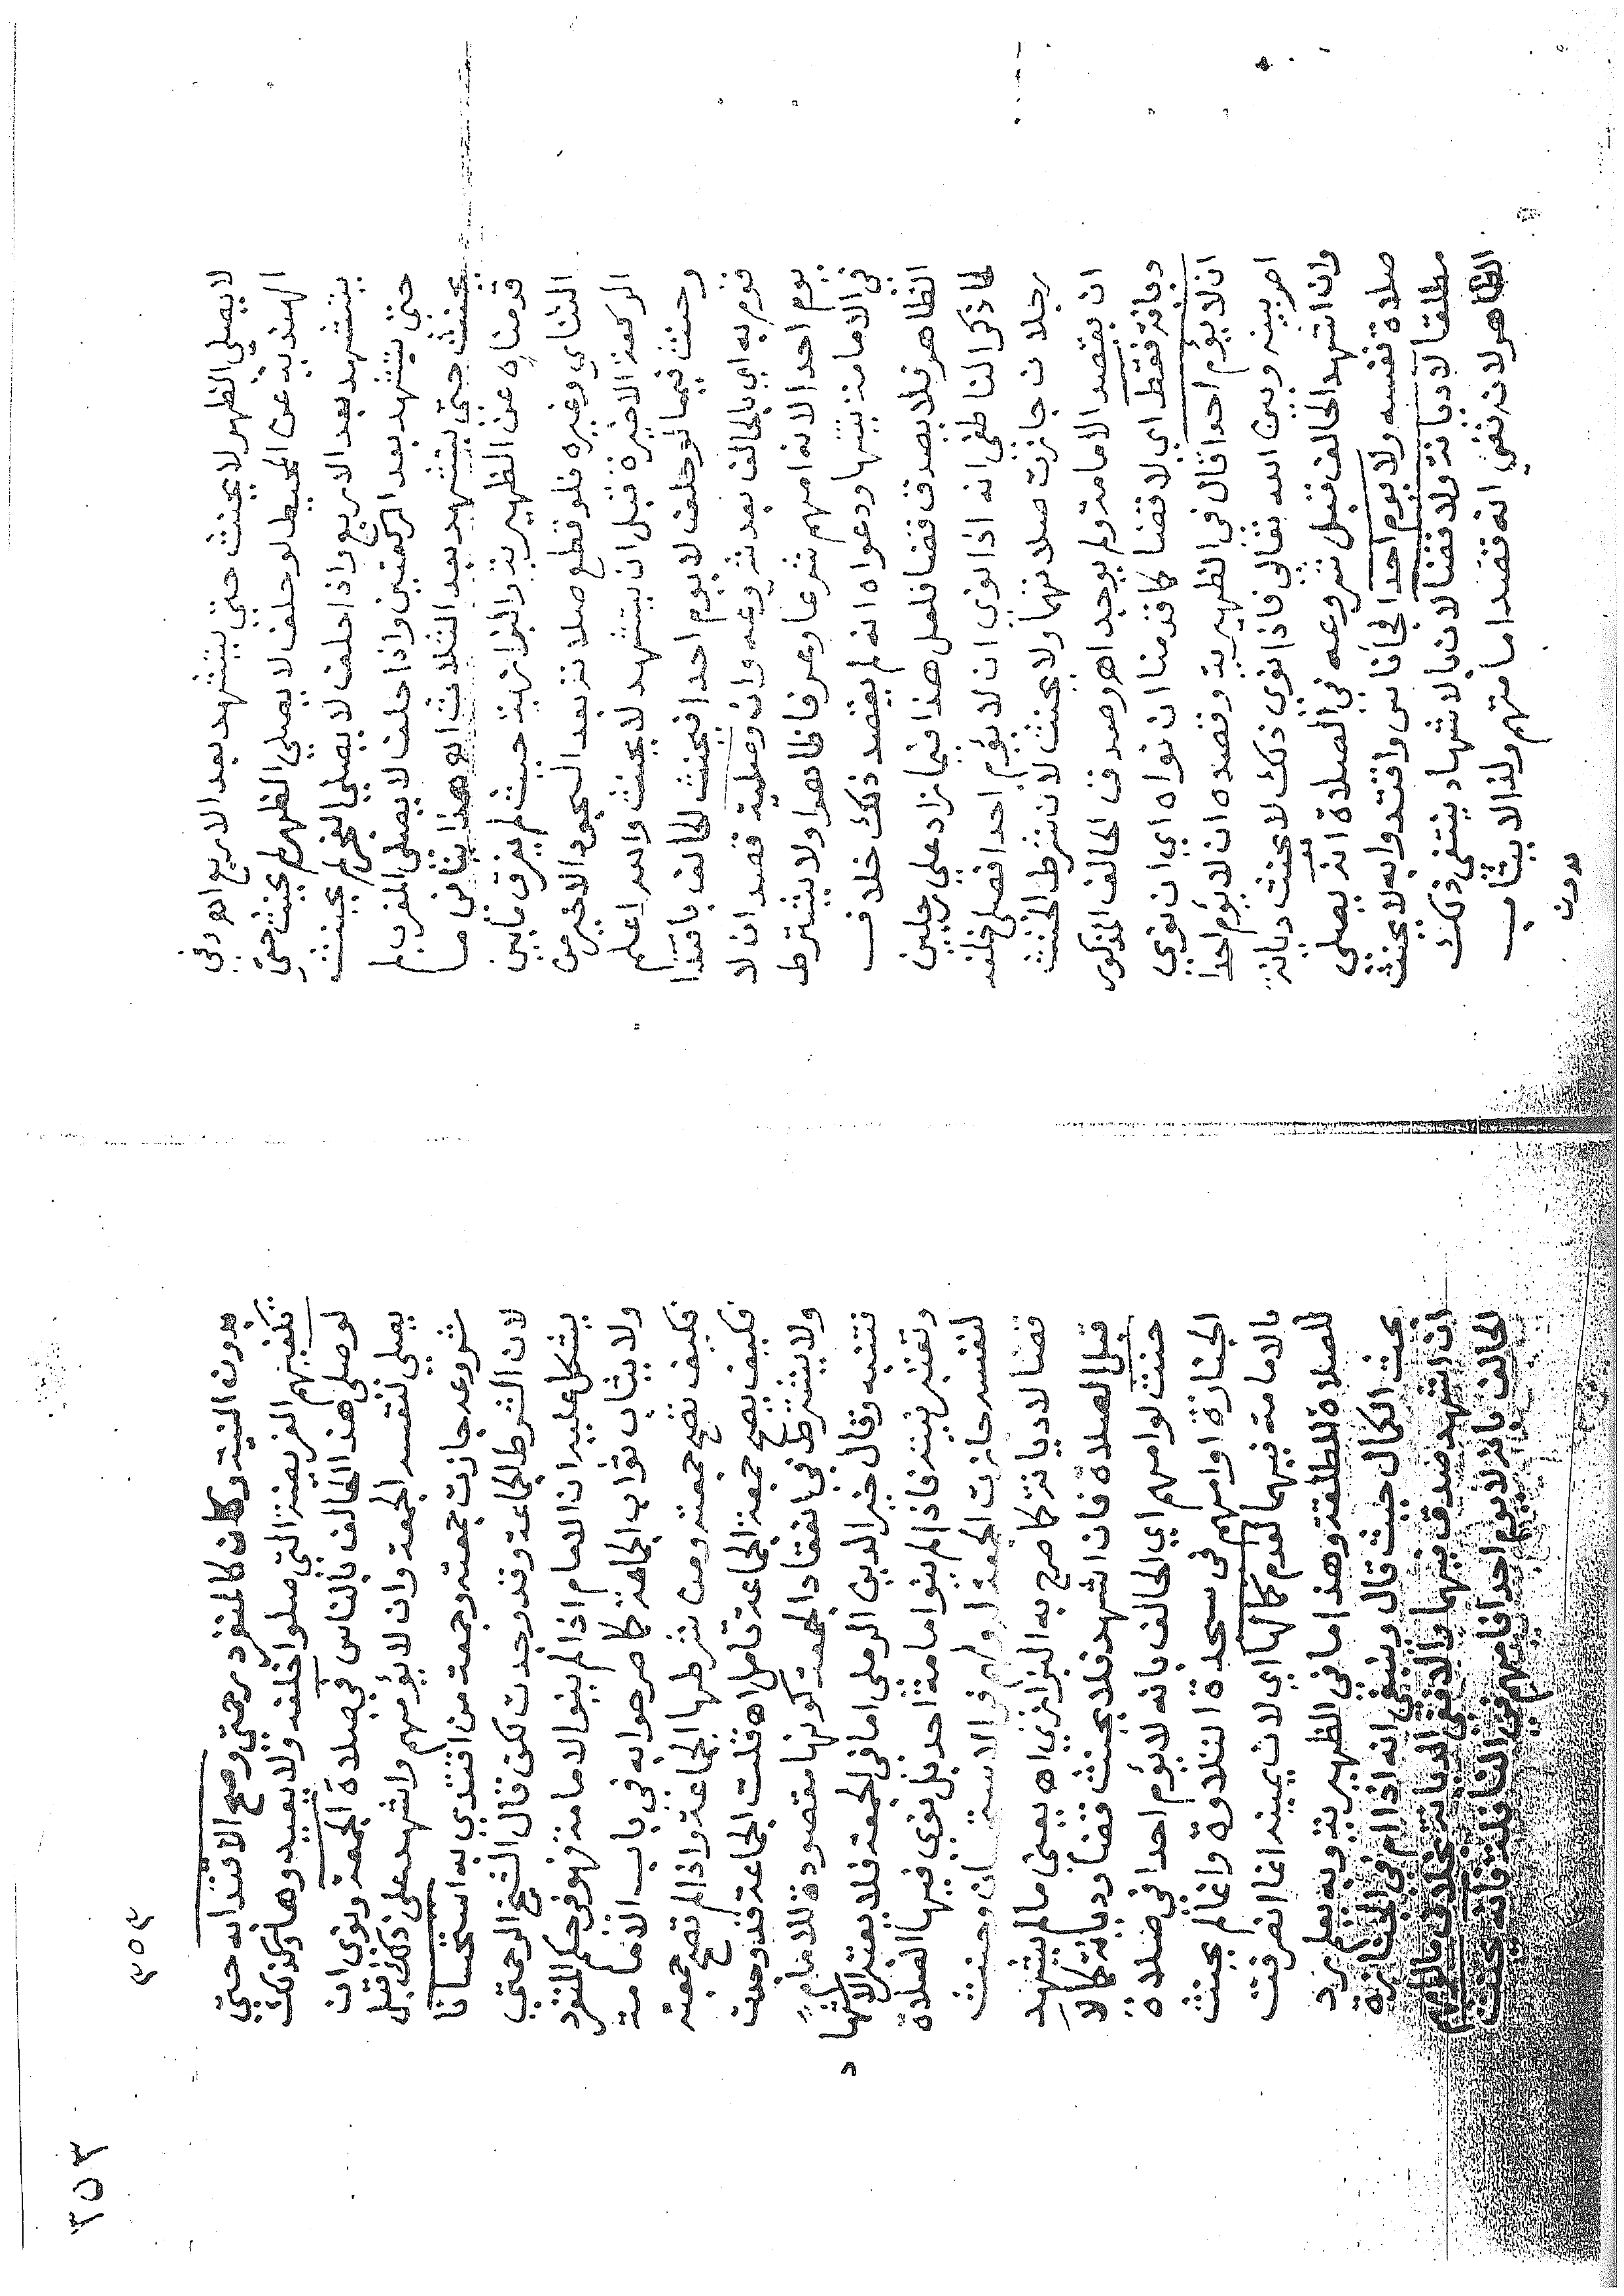 لا يصلي الظهر لا يحنث حتي يتشهد بعد الاربع اه وفي
الهنديه عن المحيط لو حلف لا يصلي الظهر لم يحنث حتي
يتشهد بعد الاربع واذا حلف لا يصلي الفجر لم يحنث
حتي يتشهد بعد الركعتين واذا حلف لا يصلي المغرب لم
يحنث حتي يتشهد بعد الثلاث اه هذا ينافي ما
قدمناه عن الظهيرية والبزازية حيث لم يفرق مابين
الثنائي وغيره فلو قطع صلاته بعد السجود الاخير من
الركعة الاخيرة قبل ان يتشهد لا يحنث والله اعلم
وحنث فيما لو حلف لا يوم احدا فيحنث الحالف باقتدا
قوم به اي بالحالف بعد شروعه وان وصلية قصد ان لا
يوم احدا لانه امهم شرعا وعرفا ظاهرا ولا يشترط
في الامامة نيتها ودعواه انه لم يقصد ذلك خلاف
الظاهر فلا يصدق قضا فلعل هذا فيما زاد علي رجلين
لما ذكر الناطفي انه اذا نوى ان لا يؤم احدا فصلى خلفه
رجلان جازت صلاتهما ولا يحنث لان شرط الحنث
ان يقصد الامامة ولم يوجد اه وصدق الحالف المذكور
ديانة فقط اي لا قضا كما قدمنا ان نواه اي ان نوي
ان لا يؤم احدا قال في الظهيرية وقصده ان لا يؤم احدا
امر بينه وبين الله تعالي فاذا نوي ذلك لا يحنث ديانة
وان اشهد الحالف قبل شروعه في الصلاة انه يصلي
صلاة نفسه ولا يوم احدا فجا ناس واقتدوا به لا يحنث
مطلقا لا ديانة ولا قضا لان بالاشهاد ينتفي ذلك
الظاهر لانه نفي انه قصد امامتهم ولذا لا يثاب
بدون
٣٥٣
٣٥٣
بدون النية وكان كالمنفرد رحمتي وصح الاقتدا به حتي
تكفيهم الفريضة التي صلوا خلفه ولا يعيدوها وكذلك
لو صلي هذا الحالف بالناس في صلاة الجمعة ونوى ان
يصلي لنفسه الجمعة وان لا يؤمهم واشهد علي ذلك قبل
شروعه جازت جمعته وجمعة من اقتدي به استحسانا
لان الشرط الجماعة وقد وجدت لكن قال الشيخ الرحمتي
يشكل عليه ان الامام اذا لم ينو الامامة فهو في حكم المنفرد
ولا يثاب ثواب الجماعة كما صرحوا به في باب الامامة
فكيف تصح جمعته ومن شرطها الجماعة واذا لم تصح جمعته
فكيف تصح جمعة الجماعة تامل اه قلت الجماعة قد وجدت
ولا يشترط في انعقاد الجمعة كونها مقصودة للامام
فتنبه وقال خير الدين الرملي اما في الجمعة فلا يعتبر الاشهاد
وتعتبر نيته فاذا لم ينو امامة احد بل نوي فيها الصلاة
لنفسه جازت الجمعة لهم في الاستحسان وحنث
قضا لا ديانة كما صرح به البزازي اه يعني ما لم يشهد
قبل الصلاة فان اشهد فلا يحنث قضا وديانة كما لا
حنث لو امهم اي الحالف بانه لا يؤم احدا في صلاة
الجنازة او امهم في سجدة التلاوة وانما لم يحنث
بالامامة فيهما لعدم كمالها اي لان يمينه انما انصرفت
للصلاة المطلقة وهذا ما في الظهيرية وبه يعلم رد
بحث الكمال حيث قال وينبغي انه اذا ام في الجنازة
ان اشهد صدق فيهما والا ففي الديانة بخلاف ما لو ام
الحالف بانه لا يوم احدا فامهم في النافلة فانه يحنث